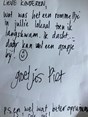 LIEVE KINDEREN,
wat was het een rommeltje
in jullie lokaal toen ik
langskwam. Ik dacht,
daar kan wel een grapje
bij
groetjes Piet